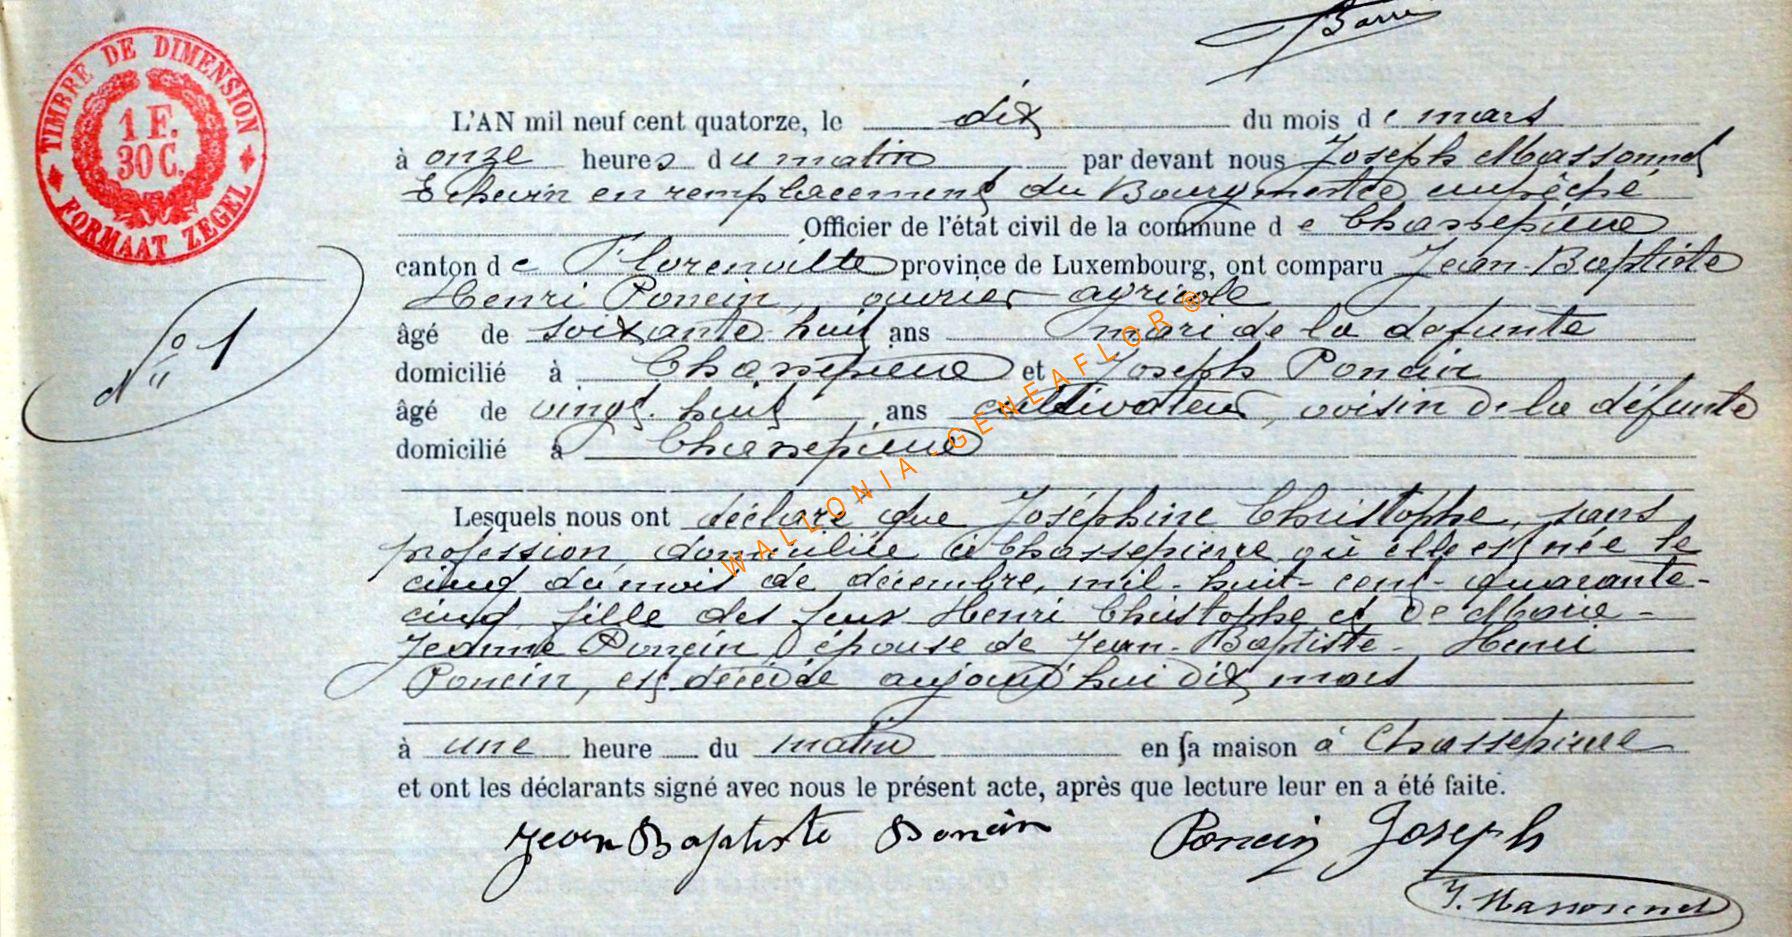 Barré
TIMBRE DE DIMENSION
1 F.
30 C.
FORMAAT ZEGEL
L'AN mil neuf cent quatorze, le dix du mois de mars
à onze heures du matin par devant nous Joseph Massonnet
Echevin en remplacement du Bourgmestre empêché
Officier de l'état civil de la commune de Chassepierre
canton de Florenville province de Luxembourg, ont comparu Jean-Baptiste
Henri Poncin, ouvrier agricole
âgé de soixante-huit ans mari de la défunte
domicilié à Chassepierre et Joseph Poncin
âgé de vingt-huit ans cultivateur, voisin de la défunte
domicilié à Chassepierre
N° 1
Lesquels nous ont déclaré que Joséphine Christophe, sans
profession, domiciliée à Chassepierre où elle est née le
cinq du mois de décembre, mil-huit-cent-quarante-
cinq, fille des feux Henri Christophe et de Marie-
Jeanne Poncin, épouse de Jean-Baptiste-Henri
Poncin, est décédée aujourd'hui dix mars
à une heure du matin en sa maison à Chassepierre
et ont les déclarants signé avec nous le présent acte, après que lecture leur en a été faite.
Jean Baptiste Poncin Poncin Joseph
J. Massonnet
WALLONIA-GENEAFLOR®